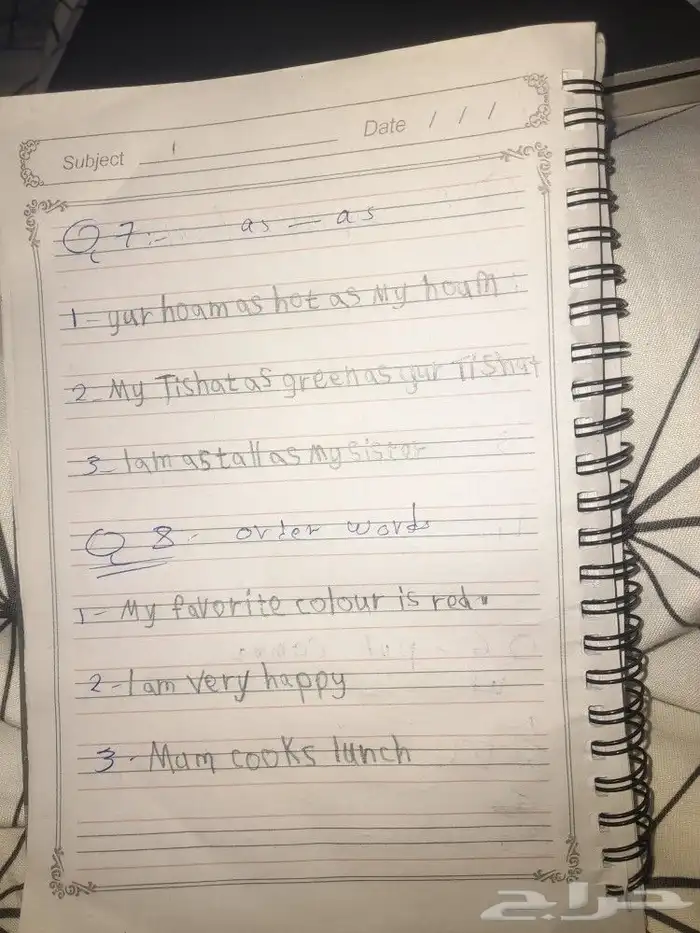 Date / / /
Subject
Q 7:- as — as
1- yur hoam as hot as My houm
2- My Tishat as green as yur Tishat
3- I am as tall as My sister
Q 8- order words
1- My favorite colour is red.
2- I am very happy
3- Mum cooks lunch
حراج